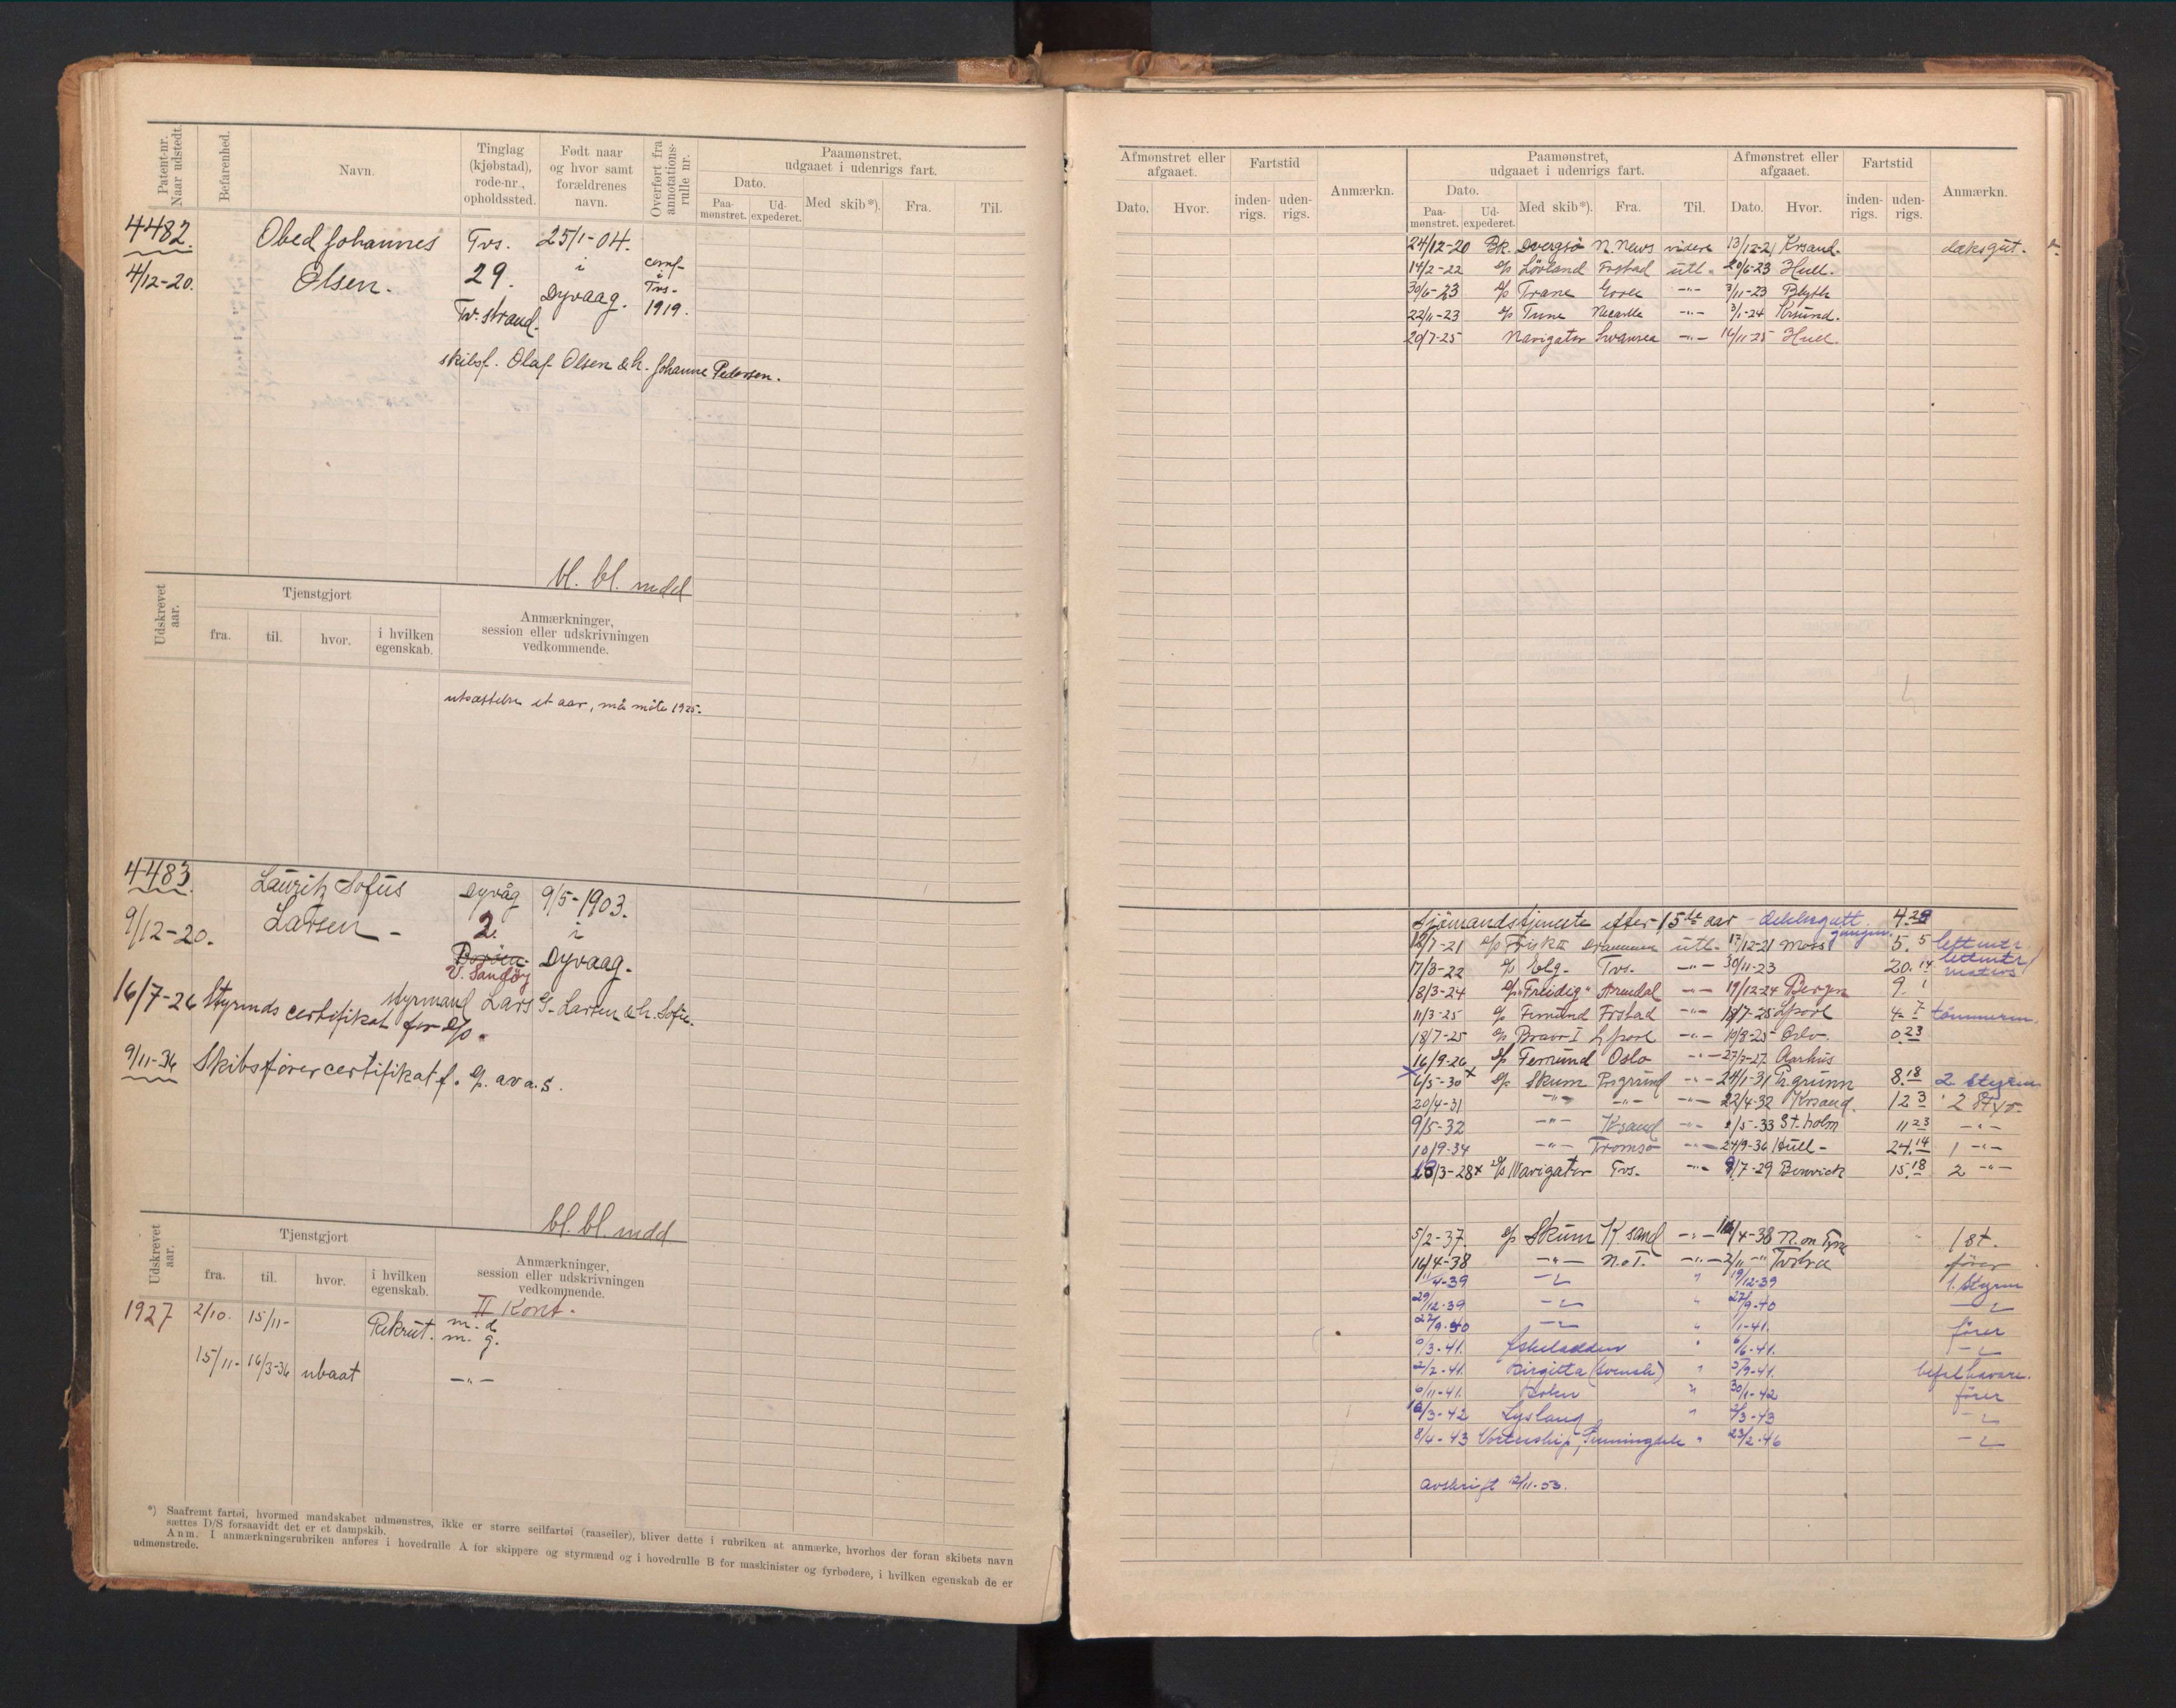 Patent-nr. Naar udstedt.
Befarenhed.
Navn.
Tinglag (kjøbstad), rode-nr., opholdssted.
Født naar og hvor samt forældrenes navn.
Overført fra annotations-rulle nr.
Paamønstret, udgaaet i udenrigs fart.
Dato.
Paa-mønstret.
Ud-expederet.
Med skib*).
Fra.
Til.
4482.
4/12-20.
Obed Johannes
Olsen.
Tvs.
29.
Tv. strand.
25/1-04.
i
Dyvaag.
conf.
i
Tvs.
1919.
skibsf. Olaf Olsen & h. Johanne Pedersen.
bl. bl. mdd
Udskrevet aar.
Tjenstgjort
fra.
til.
hvor.
i hvilken egenskab.
Anmærkninger, session eller udskrivningen vedkommende.
utsættelse et aar, må møte 1925.
4483.
9/12-20.
Lauritz Sofus
Larsen -
Dyvåg
2.
Borøen.
V. Sandøy
9/5-1903.
i
Dyvaag.
styrmand Lars G. Larsen & h. Sofie.
16/7-26 Styrmds certifikat for D/s.
9/11-36 Skibsførercertifikat f. D/s. av a. s.
bl. bl. mdd
Udskrevet aar.
Tjenstgjort
fra.
til.
hvor.
i hvilken egenskab.
Anmærkninger, session eller udskrivningen vedkommende.
II Kont.
1927 2/10. 15/11- Rekrut. m. d.
m. g.
15/11- 16/3-36 ubaat -"-
*) Saafremt fartøi, hvormed mandskabet udmønstres, ikke er større seilfartøi (raaseiler), bliver dette i rubriken at anmærke, hvorhos der foran skibets navn
sættes D/S forsaavidt det er et dampskib.
Anm. I anmærkningsrubriken anføres i hovedrulle A for skippere og styrmænd og i hovedrulle B for maskinister og fyrbødere, i hvilken egenskab de er
udmønstrede.
Afmønstret eller afgaaet.
Dato.
Hvor.
Fartstid
inden-rigs.
uden-rigs.
Anmærkn.
Paamønstret, udgaaet i udenrigs fart.
Dato.
Paa-mønstret.
Ud-expederet.
Med skib*).
Fra.
Til.
Afmønstret eller afgaaet.
Dato.
Hvor.
Fartstid
inden-rigs.
uden-rigs.
Anmærkn.
24/12-20 Bk. Dvergsø N. News videre 13/12-21 Krsand. dæksgut.
14/2-22 D/s Lövland Frstad utl. 20/6-23 Hull.
30/6-23 D/s Trane -"- 3/11-23 Blyth
22/11-23 D/s Tune -"- 3/1-24 Krsund.
20/7-25 Navigator Swansea -"- 16/11-25 Hull.
Sjömandstjeneste efter 15de aar - dekksgutt 4.29
18/7-21 D/s Drammen utl. 17/12-21 Moss 5.5
17/3-22 D/s Elg. Tvs. -"- 30/11-23 20.14 matros
18/3-24 D/s "Freidig" Arendal -"- 19/12-24 Bergen 9.1
11/3-25 D/s Femund Frstad -"- 18/7-25 Lpool 4.7 tömmerm.
18/7-25 D/s Bravo I Lpool -"- 10/8-25 Oslo. 0.23
16/9-26 D/s Femund Oslo -"- 27/3-27 Aarhus
6/5-30 x D/s Skum Prsgrund -"- 24/1-31 P.grunn 8.18 2 styrm
20/4-31 -"- -"- -"- 22/4-32 Krsand. 12 3 2 Styr.
9/5-32 -"- Krsand -"- 2/5-33 St.holm 11 23 -"-
10/9-34 -"- Tromsö -"- 24/9-36 Hull - 24.14 1 -"-
13/3-28 x D/s Navigator Tvs. -"- 9/7-29 Berwick 15.18 2 -"-
5/2-37 D/s Skum K sand -"- 16/4-38 N. on Tyne 1 st.
16/4-38 -"- N.o.T. -"- 2/11 -"- fører
11/4-39 " 19/12-39 1. Styrm
29/12-39 " 27/9-40
27/9-40 " 1/1-41. fører
6/3-41. Askeladden " 6/6-41.
2/2-41. Birgitta (svensk) " 5/9-41. befal havare.
6/11-41. " 30/1-42 fører
16/3-42 Lysland " 2/3-43
8/4-43 " 23/2-46
avskrift 2/11-53.